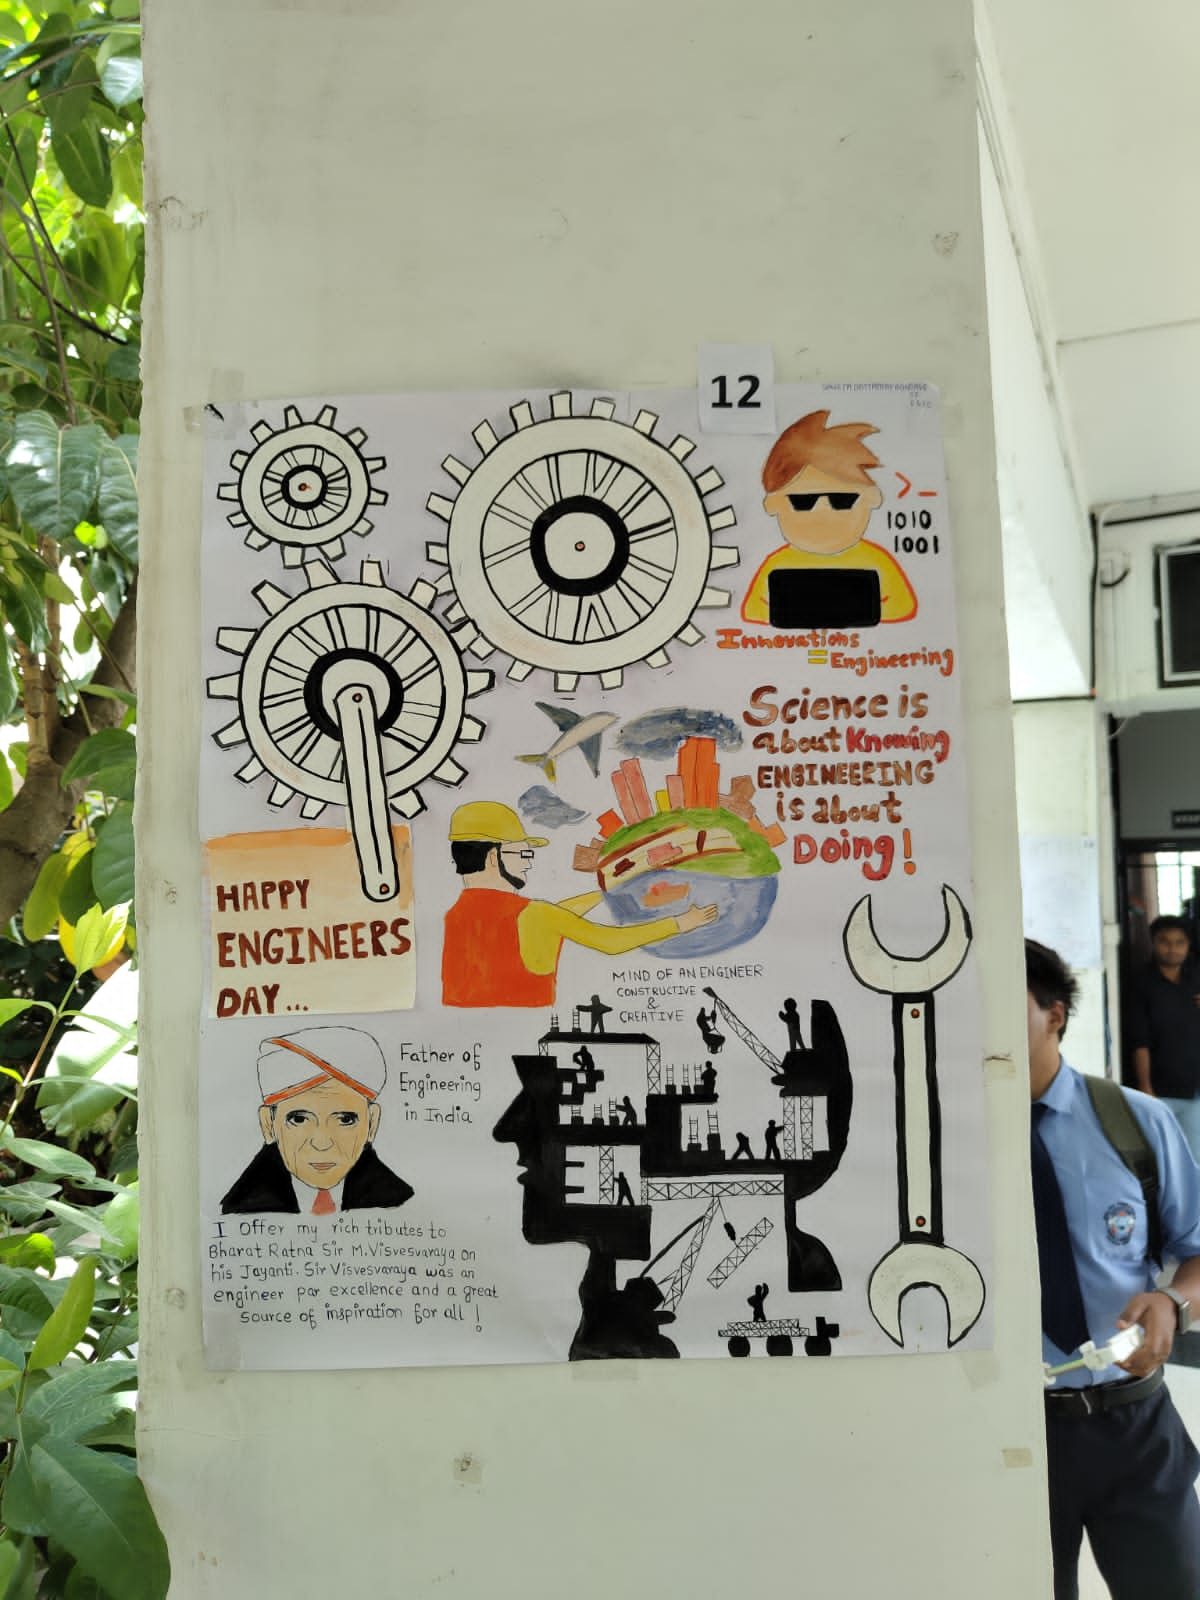 12
>_
1010
1001
Innovations
= Engineering
Science is
about Knowing
ENGINEERING
is about
Doing!
HAPPY
ENGINEERS
DAY...
MIND OF AN ENGINEER
CONSTRUCTIVE
&
CREATIVE
Father of
Engineering
in India
I Offer my rich tributes to
Bharat Ratna Sir M.Visvesvaraya on
his Jayanti. Sir Visvesvaraya was an
engineer par excellence and a great
source of inspiration for all !